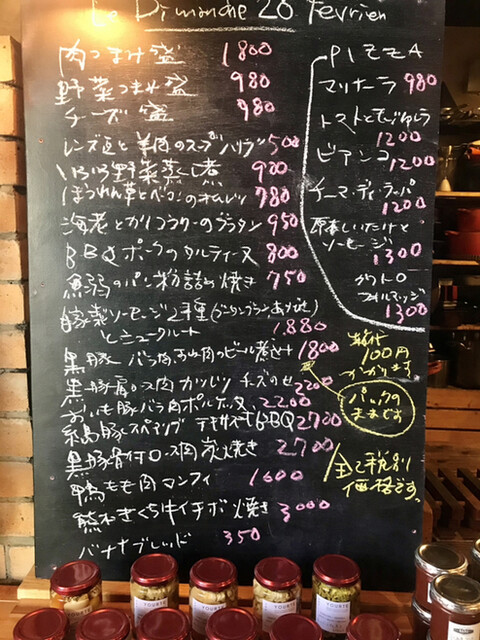 Le Dimanche 26 fevrier
肉つまみ盛 1800
野菜つまみ盛 980
チーズ盛 980
レンズ豆と羊肉のスープハリラ 500
いろいろ野菜蒸し煮 900
ほうれん草とベーコンのオムレツ 780
海老とカリフラワーのグラタン 950
BBQポークのタルティーヌ 800
魚鰯のパン粉詰め焼き 750
豚製ソーセージ2種
とシュークルート 1880
黒豚バラ肉のビール煮 1800
黒豚肩ロース肉カツレツ チーズのせ 2200
豚バラ肉ポルケッタ 2200
糸島豚スペアリブ テキサスBBQ 2700
黒豚骨付ロース肉炭焼き 2700
鴨もも肉コンフィ 1600
熊本きくち牛イチボ焼き 3000
バナナブレッド 350
PIZZA
マリナーラ 980
トマトともっつぁれら
1200
ビアンコ 1200
チーマ・ディ・ラーパ
1200
原木しいたけと
ソーセージ
1300
クワトロ
フォルマッジ
1300
箱代
100円
かかります
パックの
ままです
全て税別
価格です。
YOURTE